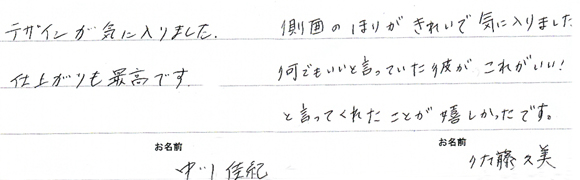 デザインが気に入りました.
仕上がりも最高です.
お名前
中川 佳紀
側面のほりがきれいで気に入りました
何でもいいと言っていた彼がこれがいい!
と言ってくれたことが嬉しかったです。
お名前
佐藤久美